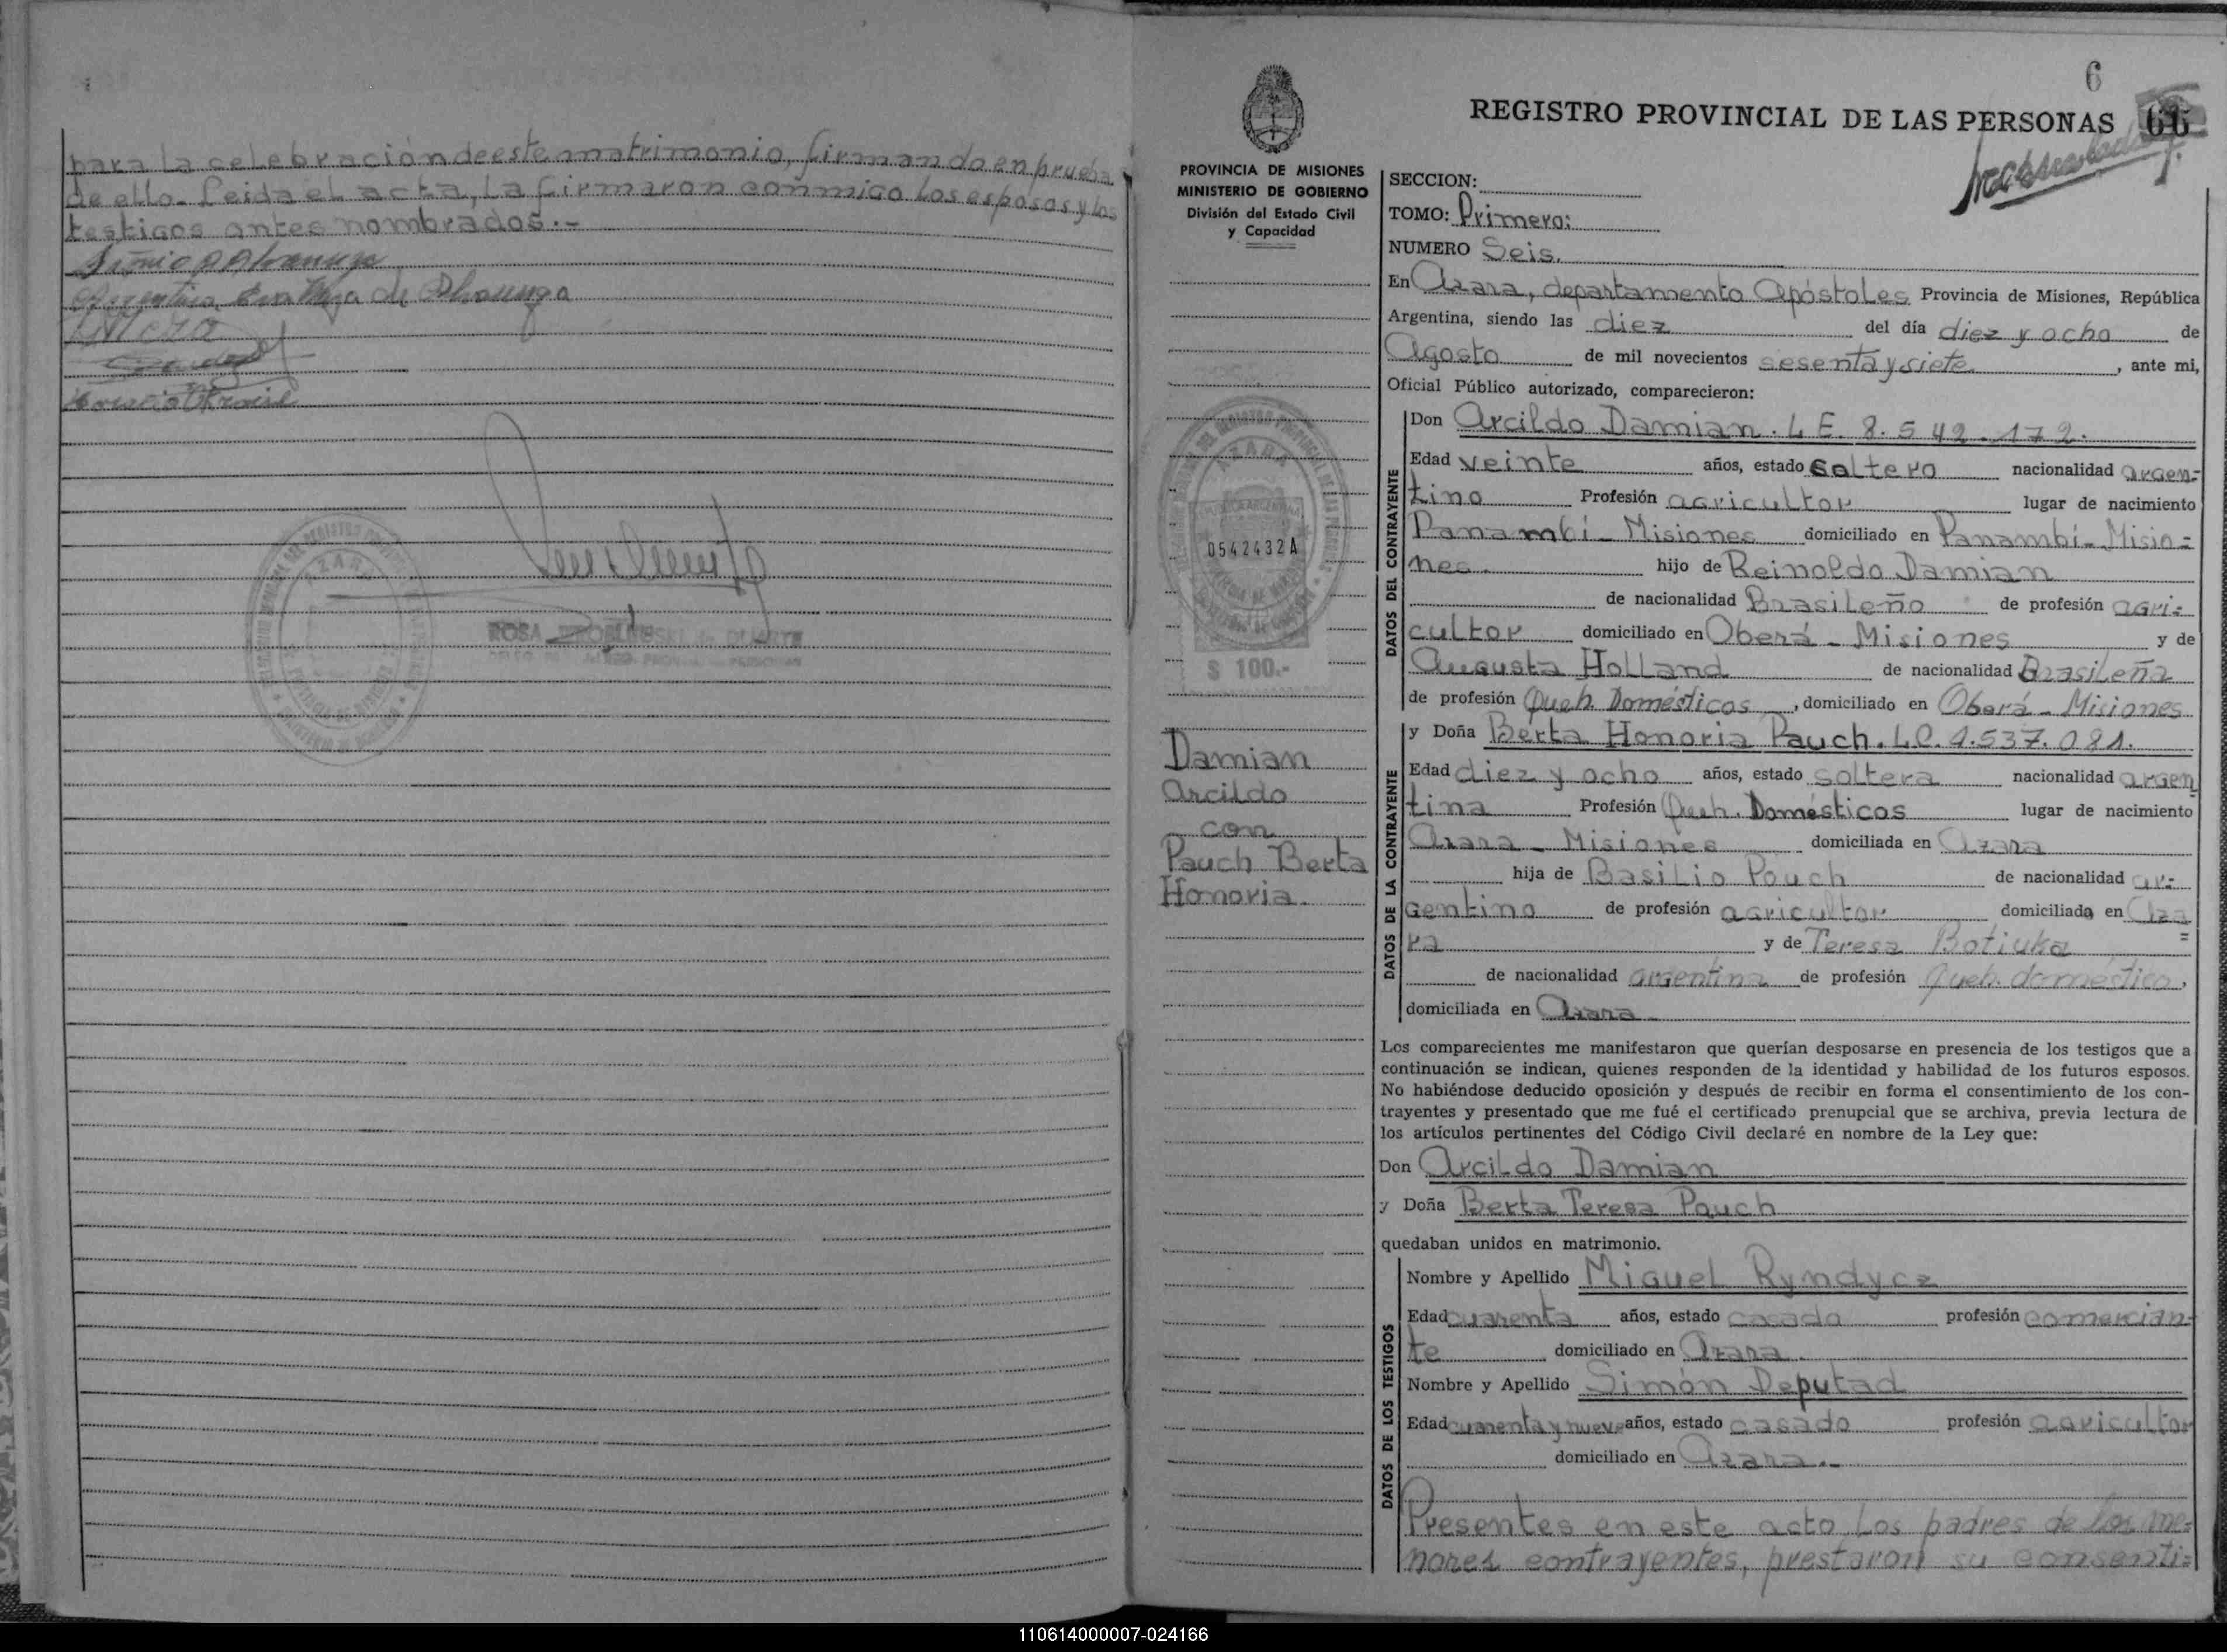 para la celebración de este matrimonio, firmando en prueba
de ello. Leida el acta, la firmaron conmigo los esposos y los
testigos antes nombrados.-
AZARA
ROSA DE DUARTE
6
REGISTRO PROVINCIAL DE LAS PERSONAS 66
PROVINCIA DE MISIONES
MINISTERIO DE GOBIERNO
División del Estado Civil
y Capacidad
SECCION:
TOMO: Primero:
NUMERO Seis.
En Azara, departamento Apóstoles Provincia de Misiones, República
Argentina, siendo las diez del día diez y ocho de
Agosto de mil novecientos sesenta y siete, ante mi,
Oficial Público autorizado, comparecieron:
DATOS DEL CONTRAYENTE
Don Arcildo Damian. L E. 8.542.172.
Edad veinte años, estado soltero nacionalidad argen-
tino Profesión agricultor lugar de nacimiento
Panambí - Misiones domiciliado en Panambí - Misio=
nes. hijo de Reinoldo Damian
de nacionalidad Brasileño de profesión agri=
cultor domiciliado en Oberá - Misiones y de
Augusta Holland de nacionalidad Brasileña
de profesión Queh. Domésticos, domiciliado en Oberá - Misiones
AZARA
0542432A
$ 100.-
Damian
Arcildo
con
Pauch Berta
Honoria.
DATOS DE LA CONTRAYENTE
y Doña Berta Honoria Pauch. L.C. 4.537.081.
Edad diez y ocho años, estado soltera nacionalidad argen
tina Profesión Queh. Domésticos lugar de nacimiento
Azara - Misiones domiciliada en Azara
hija de Basilio Pouch de nacionalidad ar=
gentino de profesión agricultor domiciliado en Aza
ra y de Teresa Botiuka =
de nacionalidad argentina de profesión queh. doméstico,
domiciliada en Azara
Los comparecientes me manifestaron que querían desposarse en presencia de los testigos que a
continuación se indican, quienes responden de la identidad y habilidad de los futuros esposos.
No habiéndose deducido oposición y después de recibir en forma el consentimiento de los con-
trayentes y presentado que me fué el certificado prenupcial que se archiva, previa lectura de
los artículos pertinentes del Código Civil declaré en nombre de la Ley que:
Don Arcildo Damian
y Doña Berta Teresa Pauch
quedaban unidos en matrimonio.
DATOS DE LOS TESTIGOS
Nombre y Apellido Miguel Ryndycz
Edad cuarenta años, estado casado profesión comercian-
te domiciliado en Azara.
Nombre y Apellido Simón Deputad
Edad cuarenta y nueve años, estado casado profesión agricultor
domiciliado en Azara.-
Presentes en este acto los padres de los me=
nores contrayentes, prestaron su consenti=
110614000007-024166